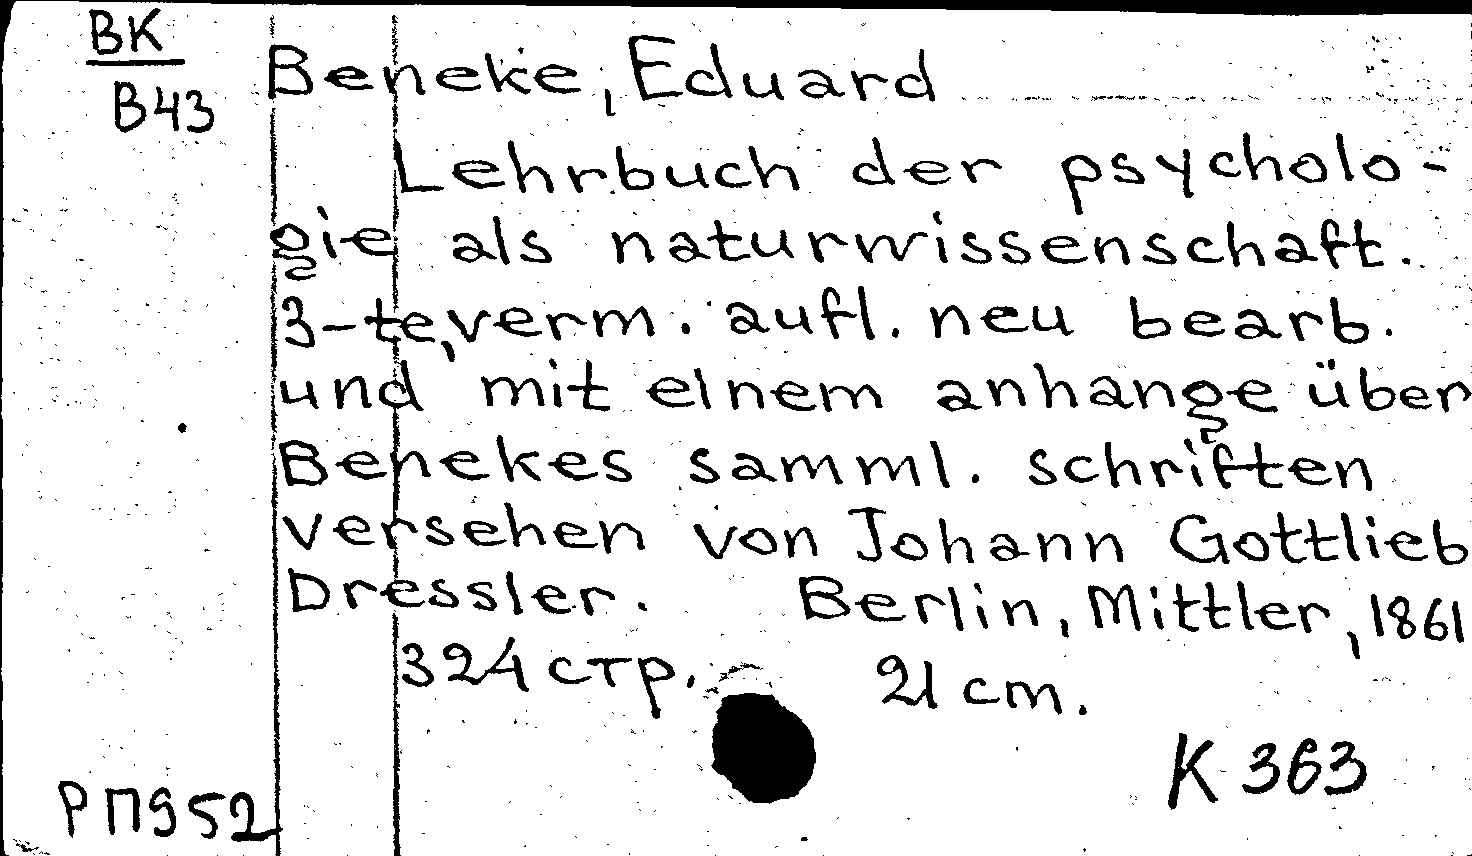 BK
B43
Beneke, Eduard
Lehrbuch der psycholo-
gie als naturwissenschaft.
3-te, verm. aufl. neu bearb.
und mit einem anhange über
Benekes samml. schriften
versehen von Johann Gottlieb
Dressler. Berlin, Mittler, 1861
324 стр. 21 cm.
K 363
РП952